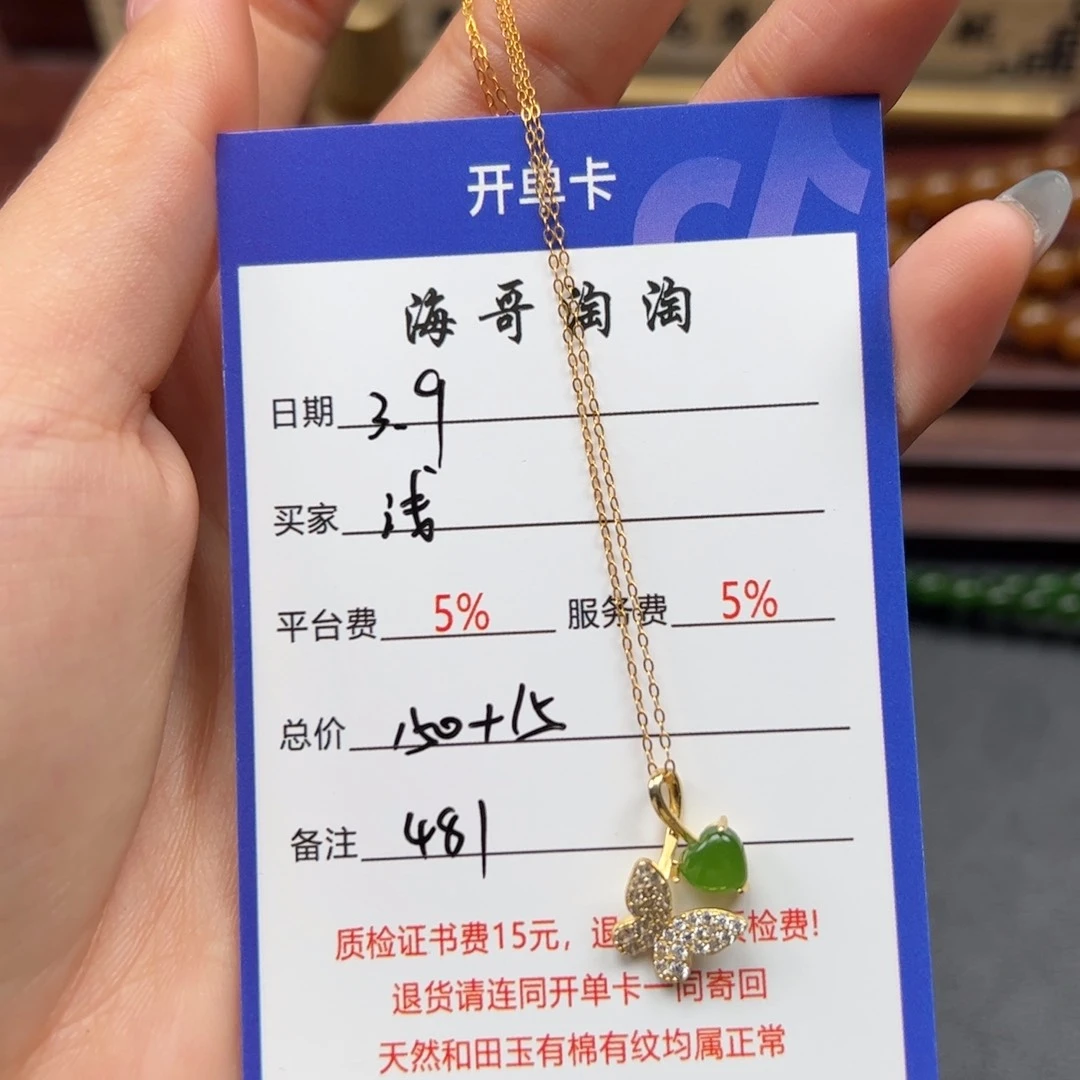 开单卡
海哥淘淘
日期 3.9
买家 浅
平台费 5% 服务费 5%
总价 150+15
备注 481
质检证书费15元，退 检费!
退货请连同开单卡一同寄回
天然和田玉有棉有纹均属正常